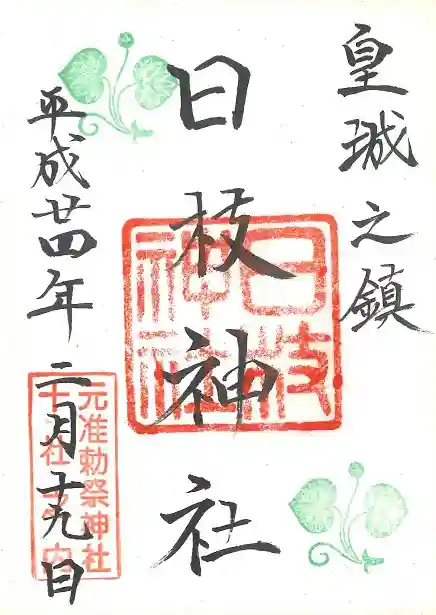 皇城之鎮
日枝神社
日枝
神社
平成廿四年二月十九日
元准勅祭神社
十社之内